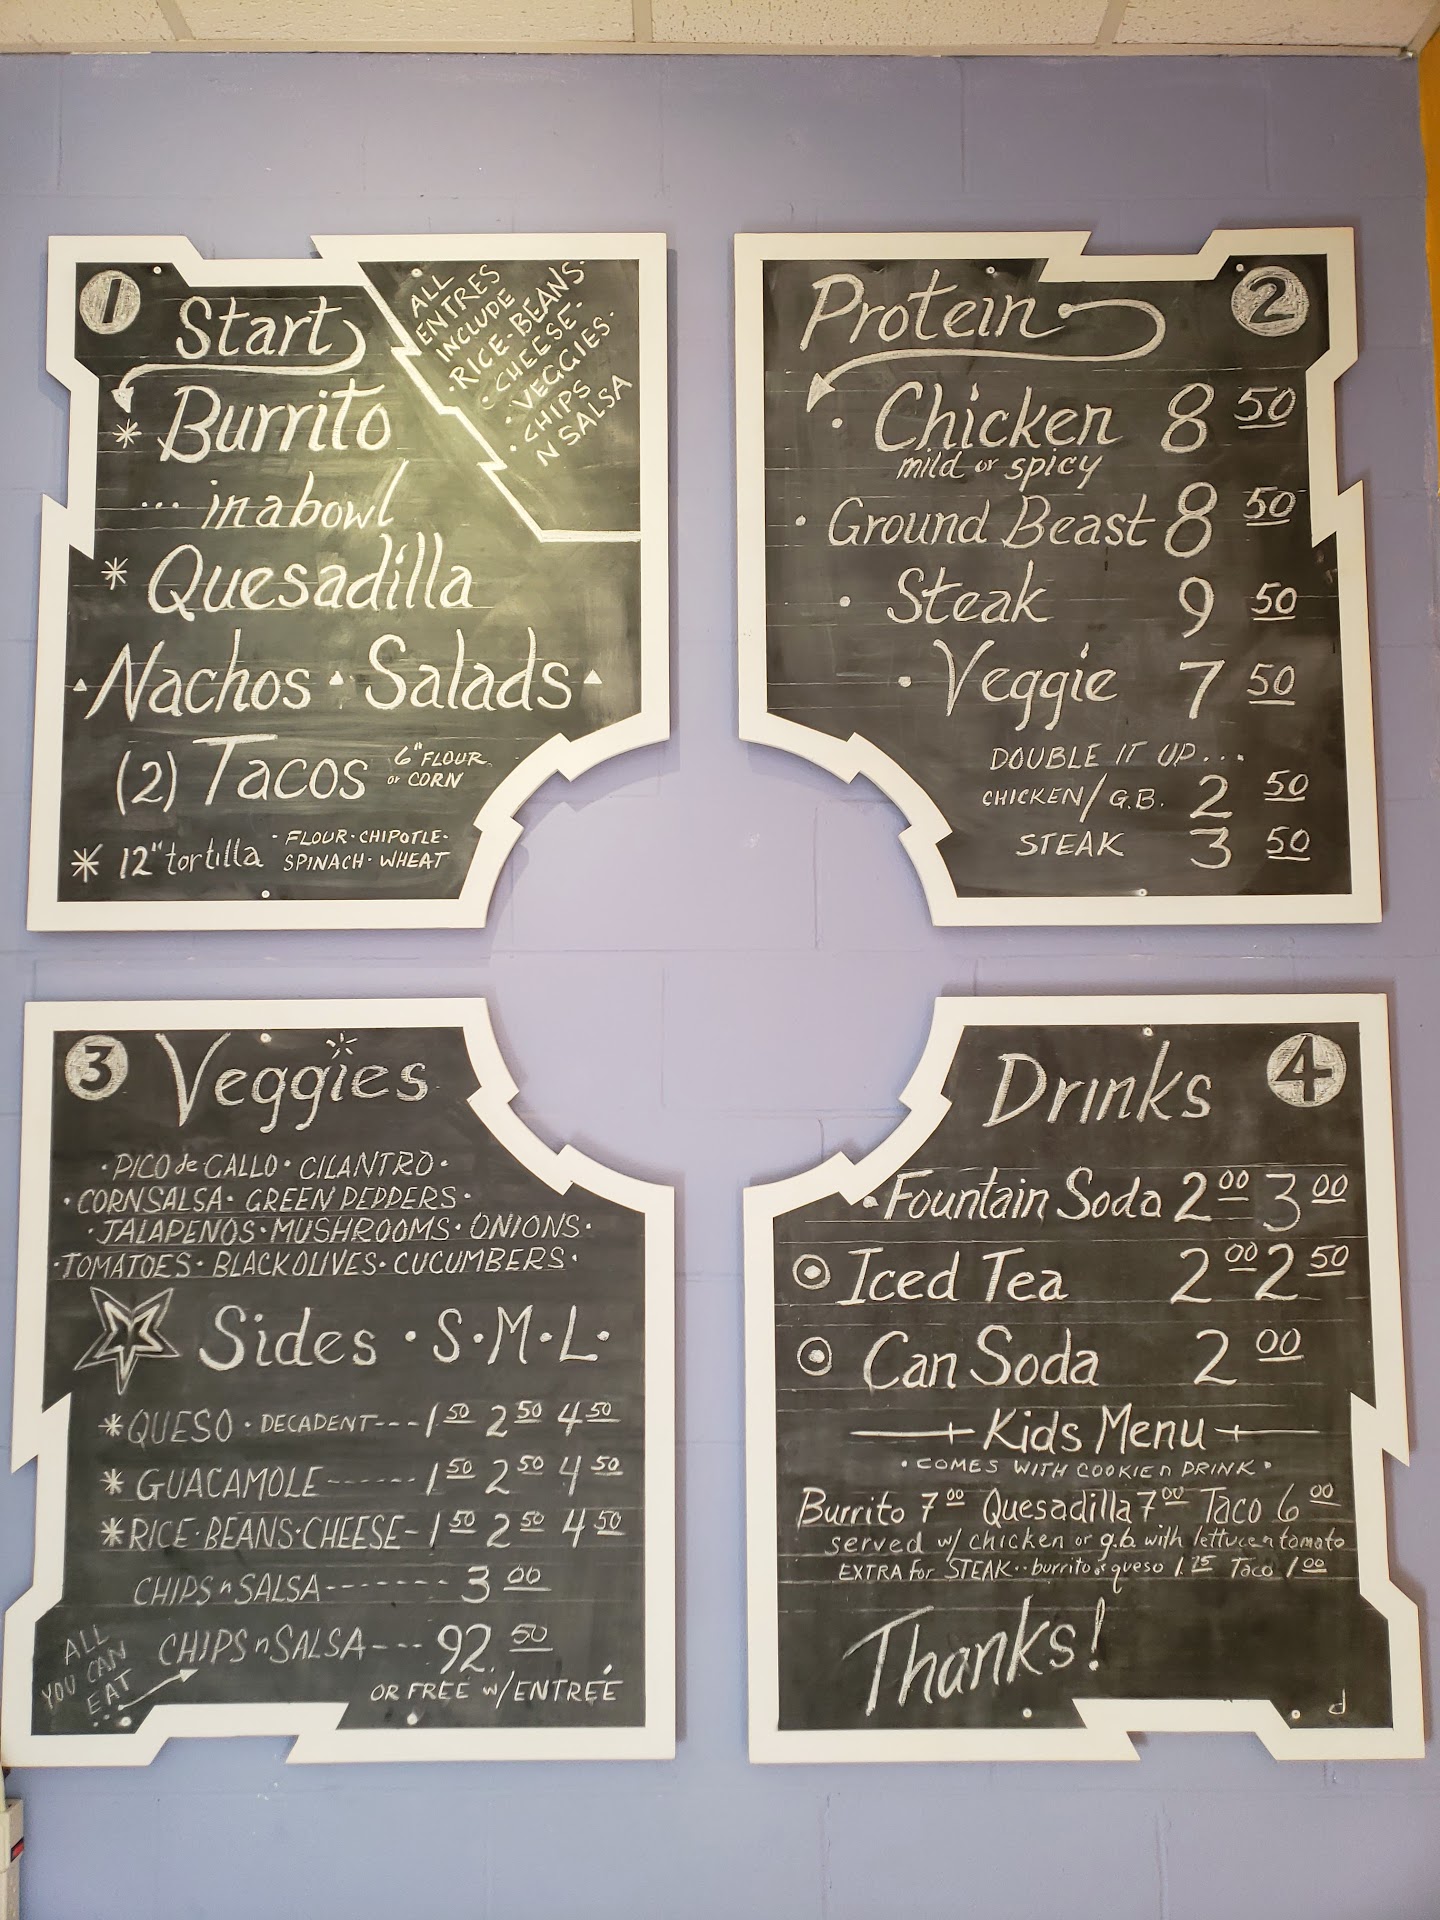 1
Start
* Burrito
... in a bowl
* Quesadilla
Nachos · Salads
(2) Tacos 6" FLOUR or CORN
* 12" tortilla · FLOUR · CHIPOTLE ·
SPINACH · WHEAT
ALL
ENTRES
INCLUDE
· RICE · BEANS ·
· CHEESE ·
· VEGGIES ·
· CHIPS
N SALSA
2
Protein
· Chicken 8 50
mild or spicy
· Ground Beast 8 50
· Steak 9 50
· Veggie 7 50
DOUBLE IT UP...
CHICKEN/G.B. 2 50
STEAK 3 50
3
Veggies
· PICO de GALLO · CILANTRO ·
· CORN SALSA · GREEN PEPPERS ·
· JALAPENOS · MUSHROOMS · ONIONS ·
· TOMATOES · BLACK OLIVES · CUCUMBERS ·
Sides · S · M · L ·
* QUESO · DECADENT --- 1 50 2 50 4 50
* GUACAMOLE ------ 1 50 2 50 4 50
* RICE · BEANS · CHEESE - 1 50 2 50 4 50
CHIPS n SALSA ------- 3 00
CHIPS n SALSA --- 92. 50
OR FREE w/ ENTRÉE
ALL
YOU CAN
EAT
...
4
Drinks
· Fountain Soda 2 00 3 00
Iced Tea 2 00 2 50
Can Soda 2 00
Kids Menu
· COMES WITH COOKIE n DRINK ·
Burrito 7 00 Quesadilla 7 00 Taco 6 00
served w/ chicken or g.b. with lettuce n tomato
EXTRA for STEAK .. burrito or queso 1. 25 Taco 1 00
Thanks!
d